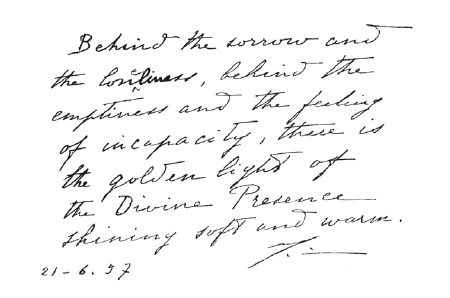 Behind the sorrow and
the loneliness, behind the
emptiness and the feeling
of incapacity, there is
the golden light of
the Divine Presence
shining soft and warm.
21-6.57